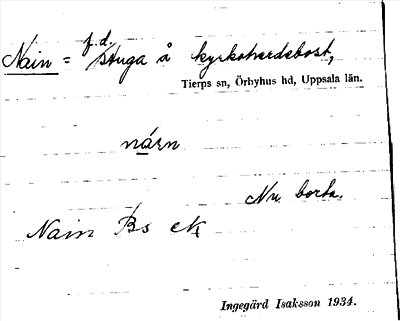 f.d.
Nain = stuga å kyrkoherdebost,
Tierps sn, Örbyhus hd, Uppsala län.
nárn
Nu borta.
Nain Bs
Ingegärd Isaksson 1934.